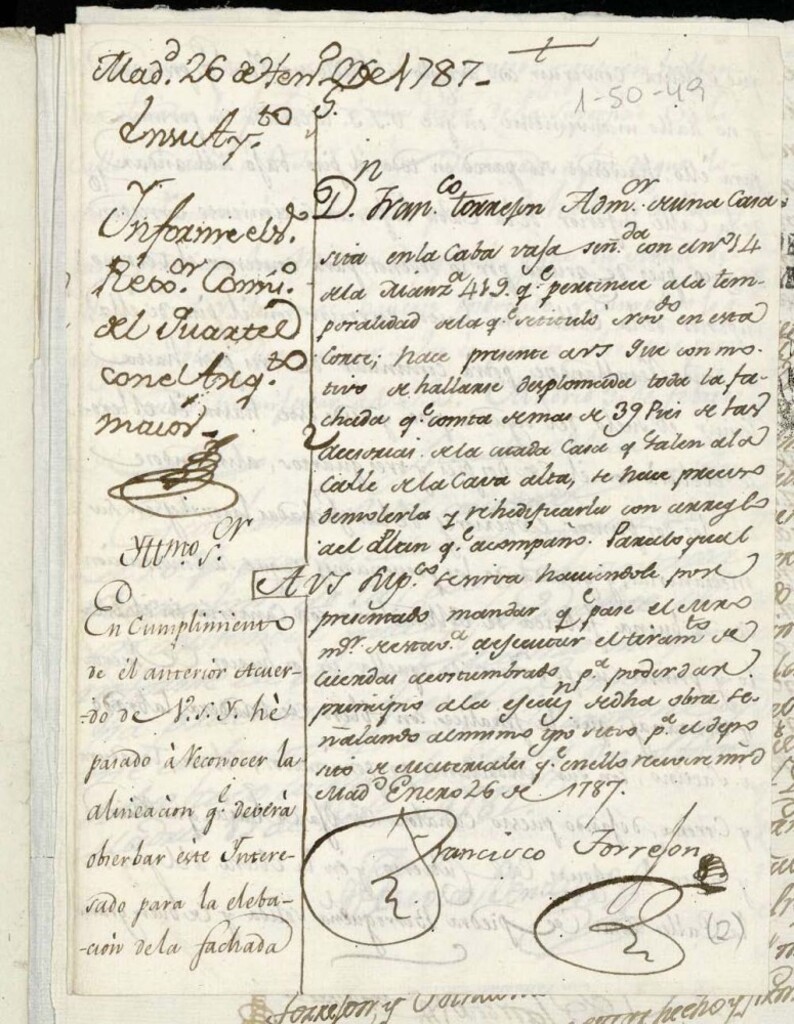 Mad.d 26 de Hen.o de 1787-
1-50-49
En su Ay.to
Informe el s.r
Rex.or Comi.o
del Quartel
con el Arq.to
maior
Yttmo s.or
En Cumplimiento
de el anterior Acuer-
-do de V.S.Y. hè
pasado à Reconocer la
alineacion q.e deverà
obserbar este Yntere-
sado para la eleba-
-cion de la fachada
S.
D.n Fran.co Torrejon Adm.or de una Casa
sita en la Caba vaja señ.da con el n.o 14
de la Manz.a 419. q.e pertenece a la tem-
poralidad de la q.e se tituló Nov.do en esta
Corte; hace presente a VS que con mo-
tivo de hallarse desplomada toda la fa-
chada q.e consta de mas de 39 Pies de las
Acesorias de la citada Casa q.e salen a la
Calle de la Cava alta, se hace preciso
demolerla y rehedificarla con arreglo
ael Plan q.e acompaño. Para lo qual
A VS Sup.co se sirva haviendole por
presentado mandar q.e pase el Mro
m.or de esta v.a a ejecutar el tiram.to de
Cuerdas acostumbrado p.a poder dar
principio a la ejecu.n de dha obra se-
ñalando al mismo tpo sitio p.a el depo
sito de Materiales q.e en ello recivire mrd
Mad.d Enero 26 de 1787.
Francisco Torrejon
(2)
Torrejon, y
hecho y